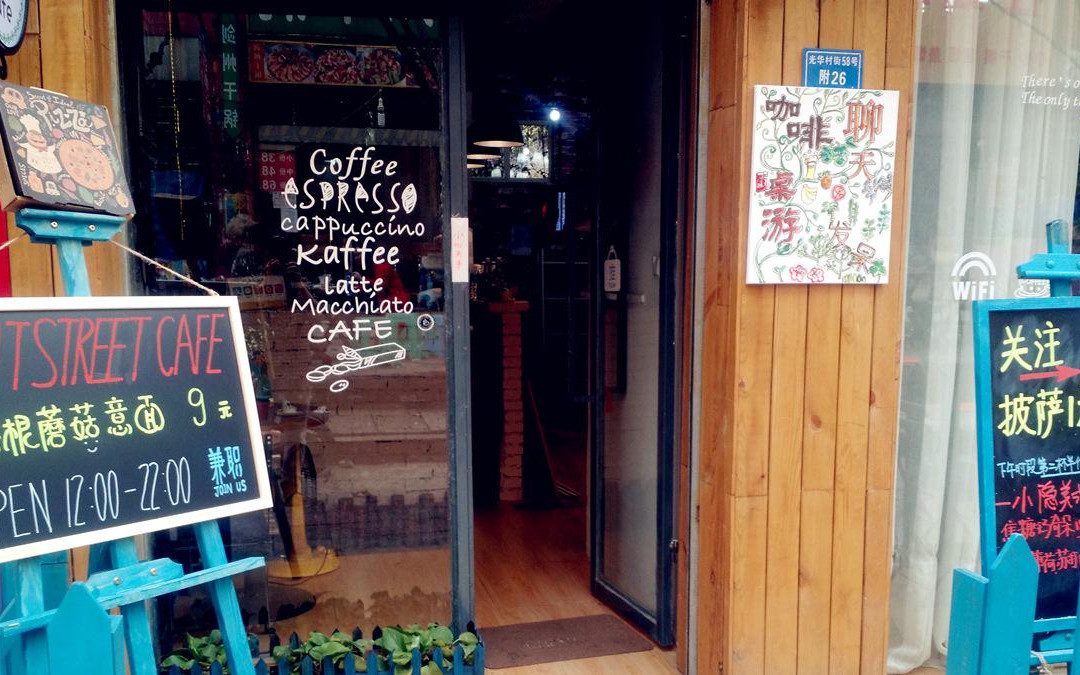 T STREET CAFE
根蘑菇意面 9元
PEN 12:00-22:00
兼职
JOIN US
38
48
68
Coffee
ESPRESSO
cappuccino
Kaffee
latte
Macchiato
CAFE
光华村街58号
附26
咖啡
聊天
桌游
发呆
There's o
The only th
WiFi
关注
披萨
下午时段第二杯半价
一小隐美
焦糖玛朵